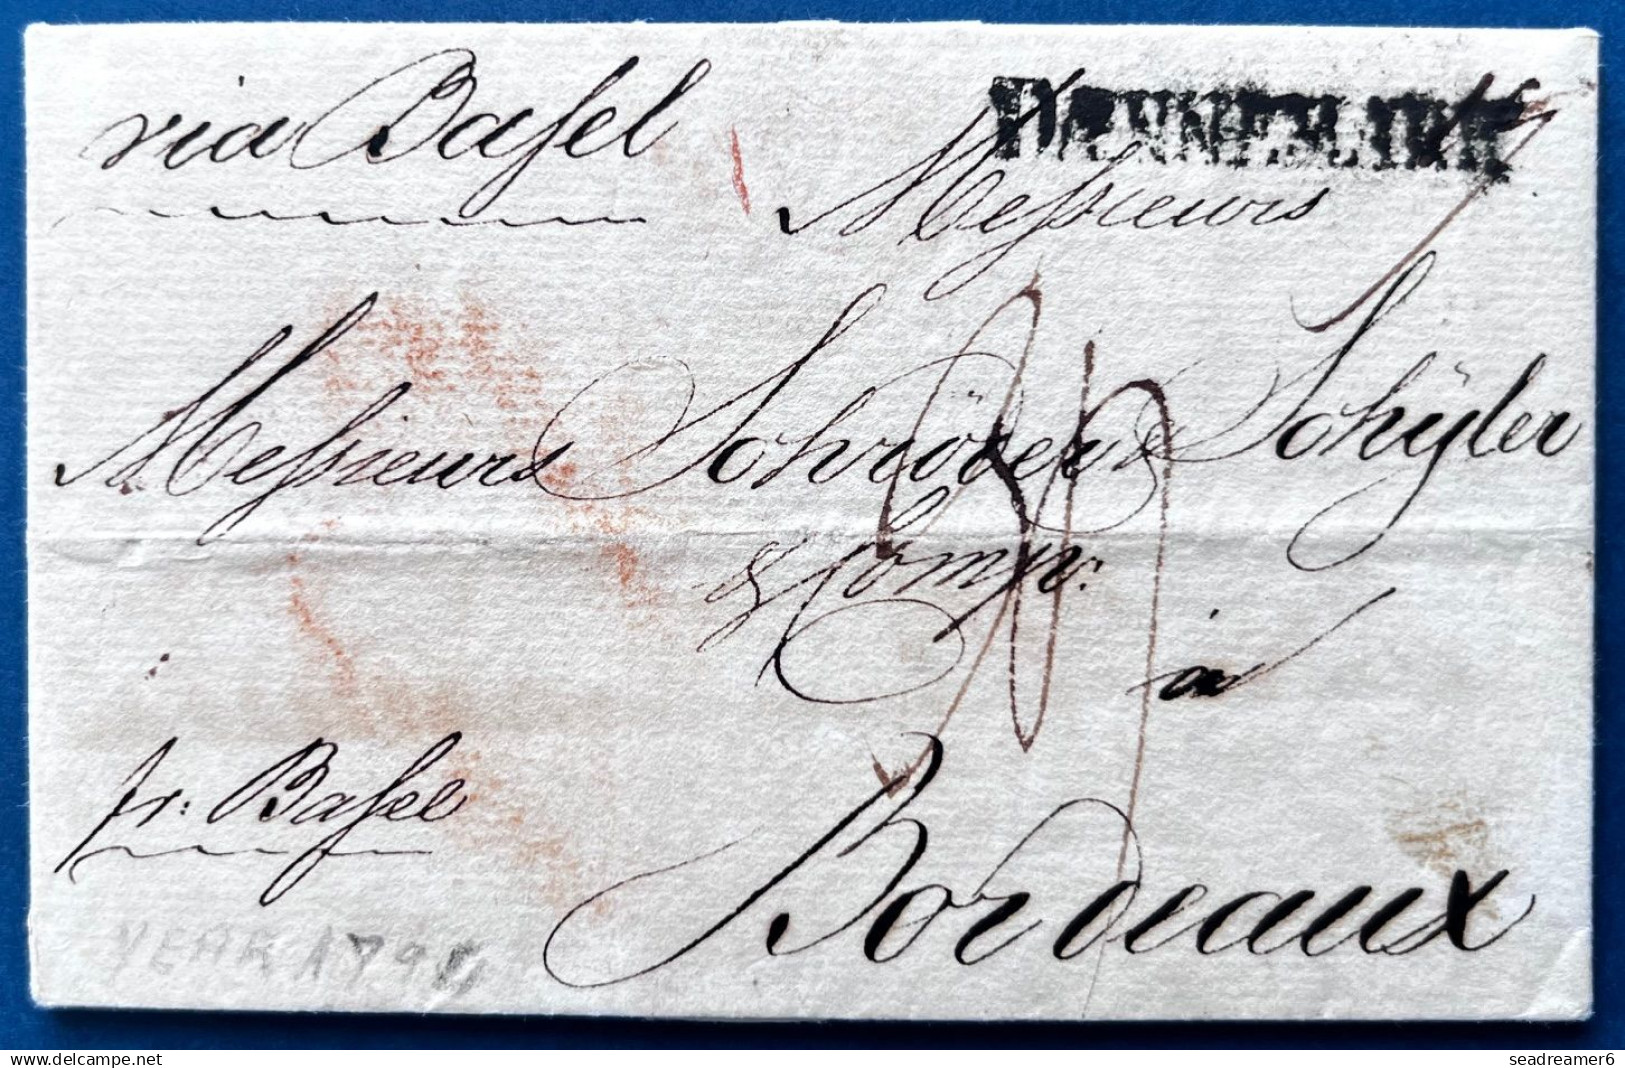 via Basel
Messieurs
Messieurs Schröder & Schÿler
& Comp:
à
Bordeaux
fr: Basel
YEAR 179
seadreamer6